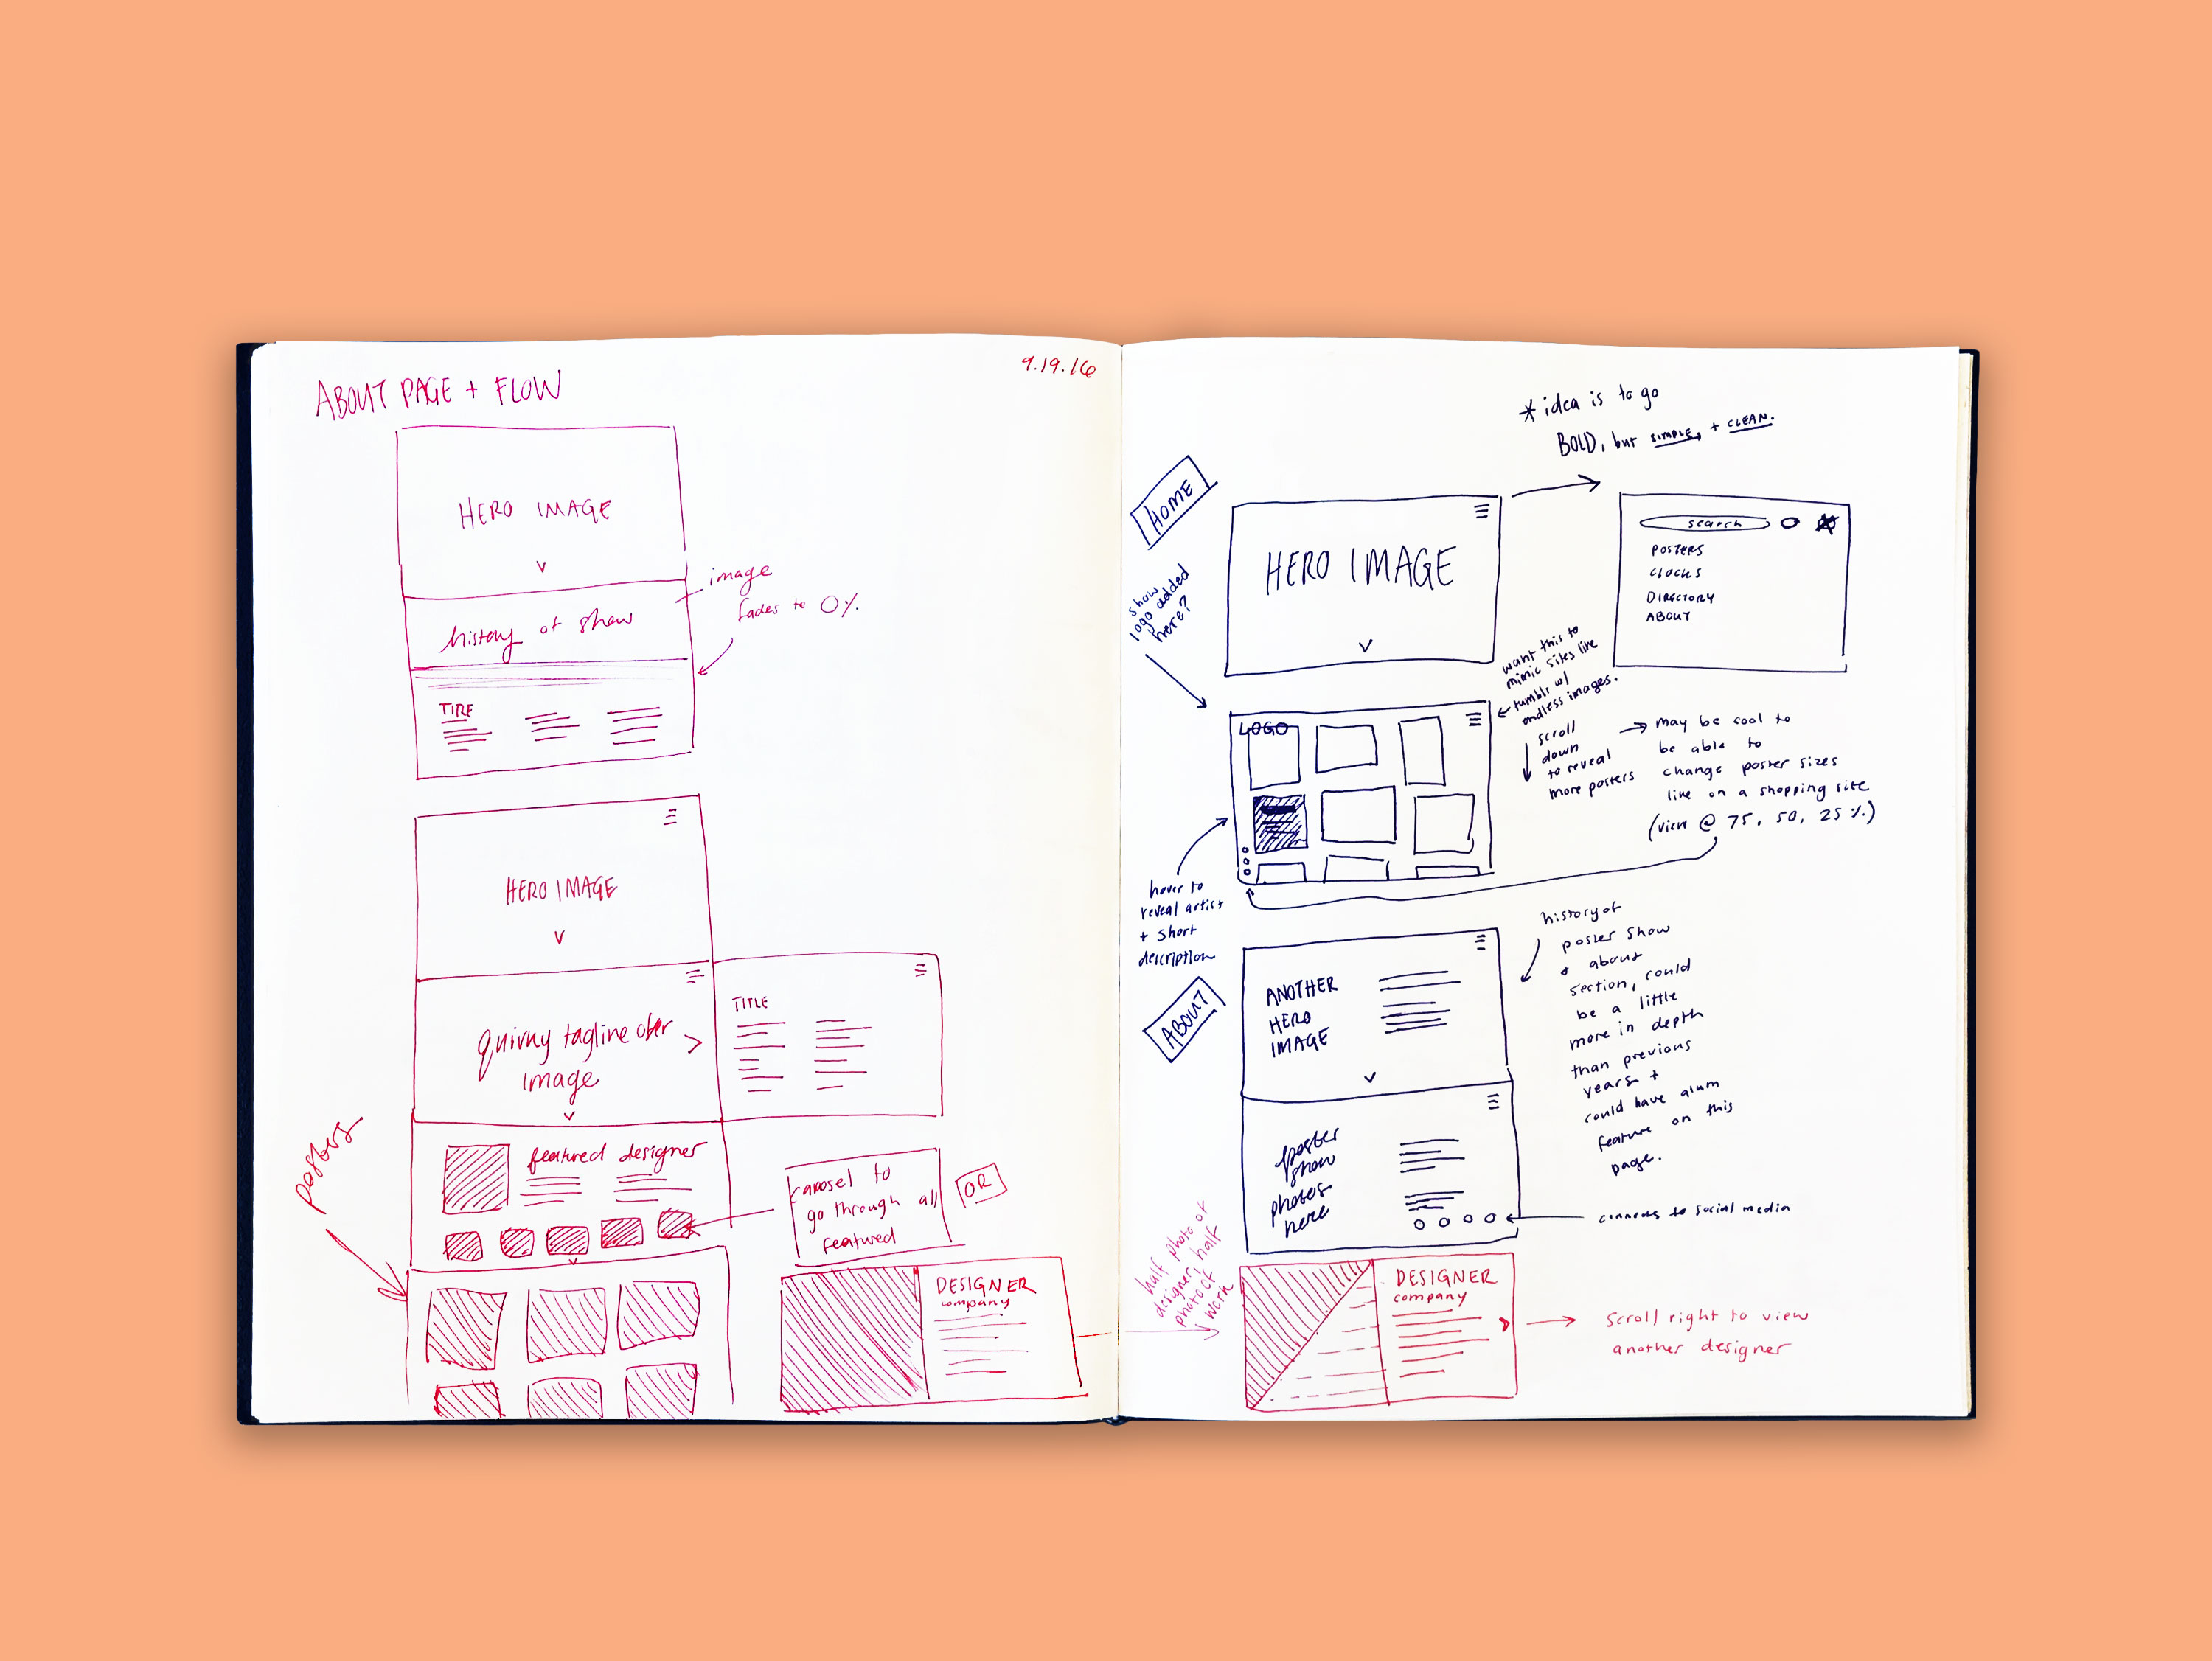 9.19.16
ABOUT PAGE + FLOW
HERO IMAGE
image
fades to 0%
history of show
TITLE
HERO IMAGE
TITLE
quirky tagline over
image
posters
featured designer
carosel to
go through all
featured
OR
DESIGNER
company
* idea is to go
BOLD, but SIMPLE, + CLEAN.
HOME
HERO IMAGE
search
POSTERS
CLOCKS
DIRECTORY
ABOUT
show
logo added
here?
LOGO
want this to
mimic sites like
tumblr w/
endless images.
scroll
down
to reveal
more posters
may be cool to
be able to
change poster sizes
like on a shopping site
(view @ 75, 50, 25%)
hover to
reveal artist
+ short
description
ABOUT
ANOTHER
HERO
IMAGE
history of
poster show
+ about
section, could
be a little
more in depth
than previous
years +
could have alum
feature on this
page.
poster
show
photos
here
connects to social media
half photo of
designer, half
photo of
work
DESIGNER
company
scroll right to view
another designer